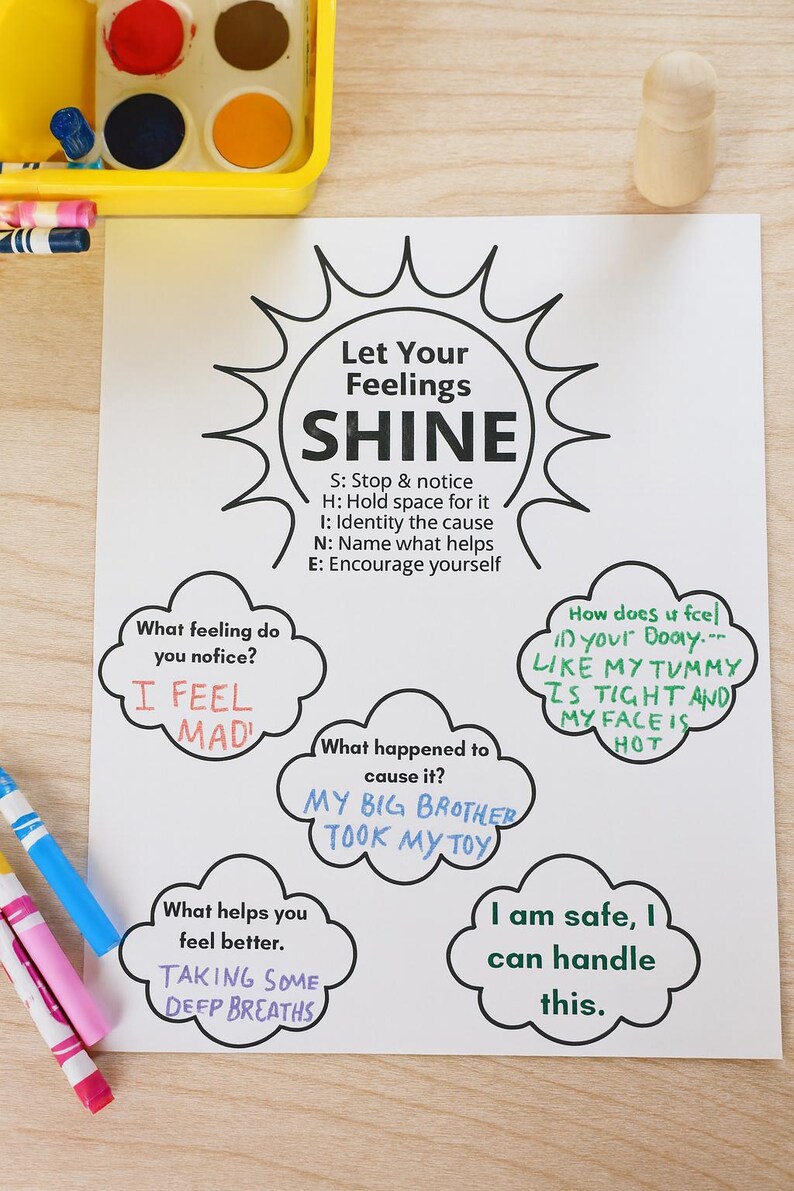 Let Your
Feelings
SHINE
S: Stop & notice
H: Hold space for it
I: Identity the cause
N: Name what helps
E: Encourage yourself
What feeling do
you nofice?
I FEEL
MAD'
How does it feel
in your Booly.--
LIKE MY TUMMY
IS TIGHT AND
MY FACE IS
HOT
What happened to
cause it?
MY BIG BROTHER
TOOK MY TOY
What helps you
feel better.
TAKING SOME
DEEP BREATHS
I am safe, I
can handle
this.